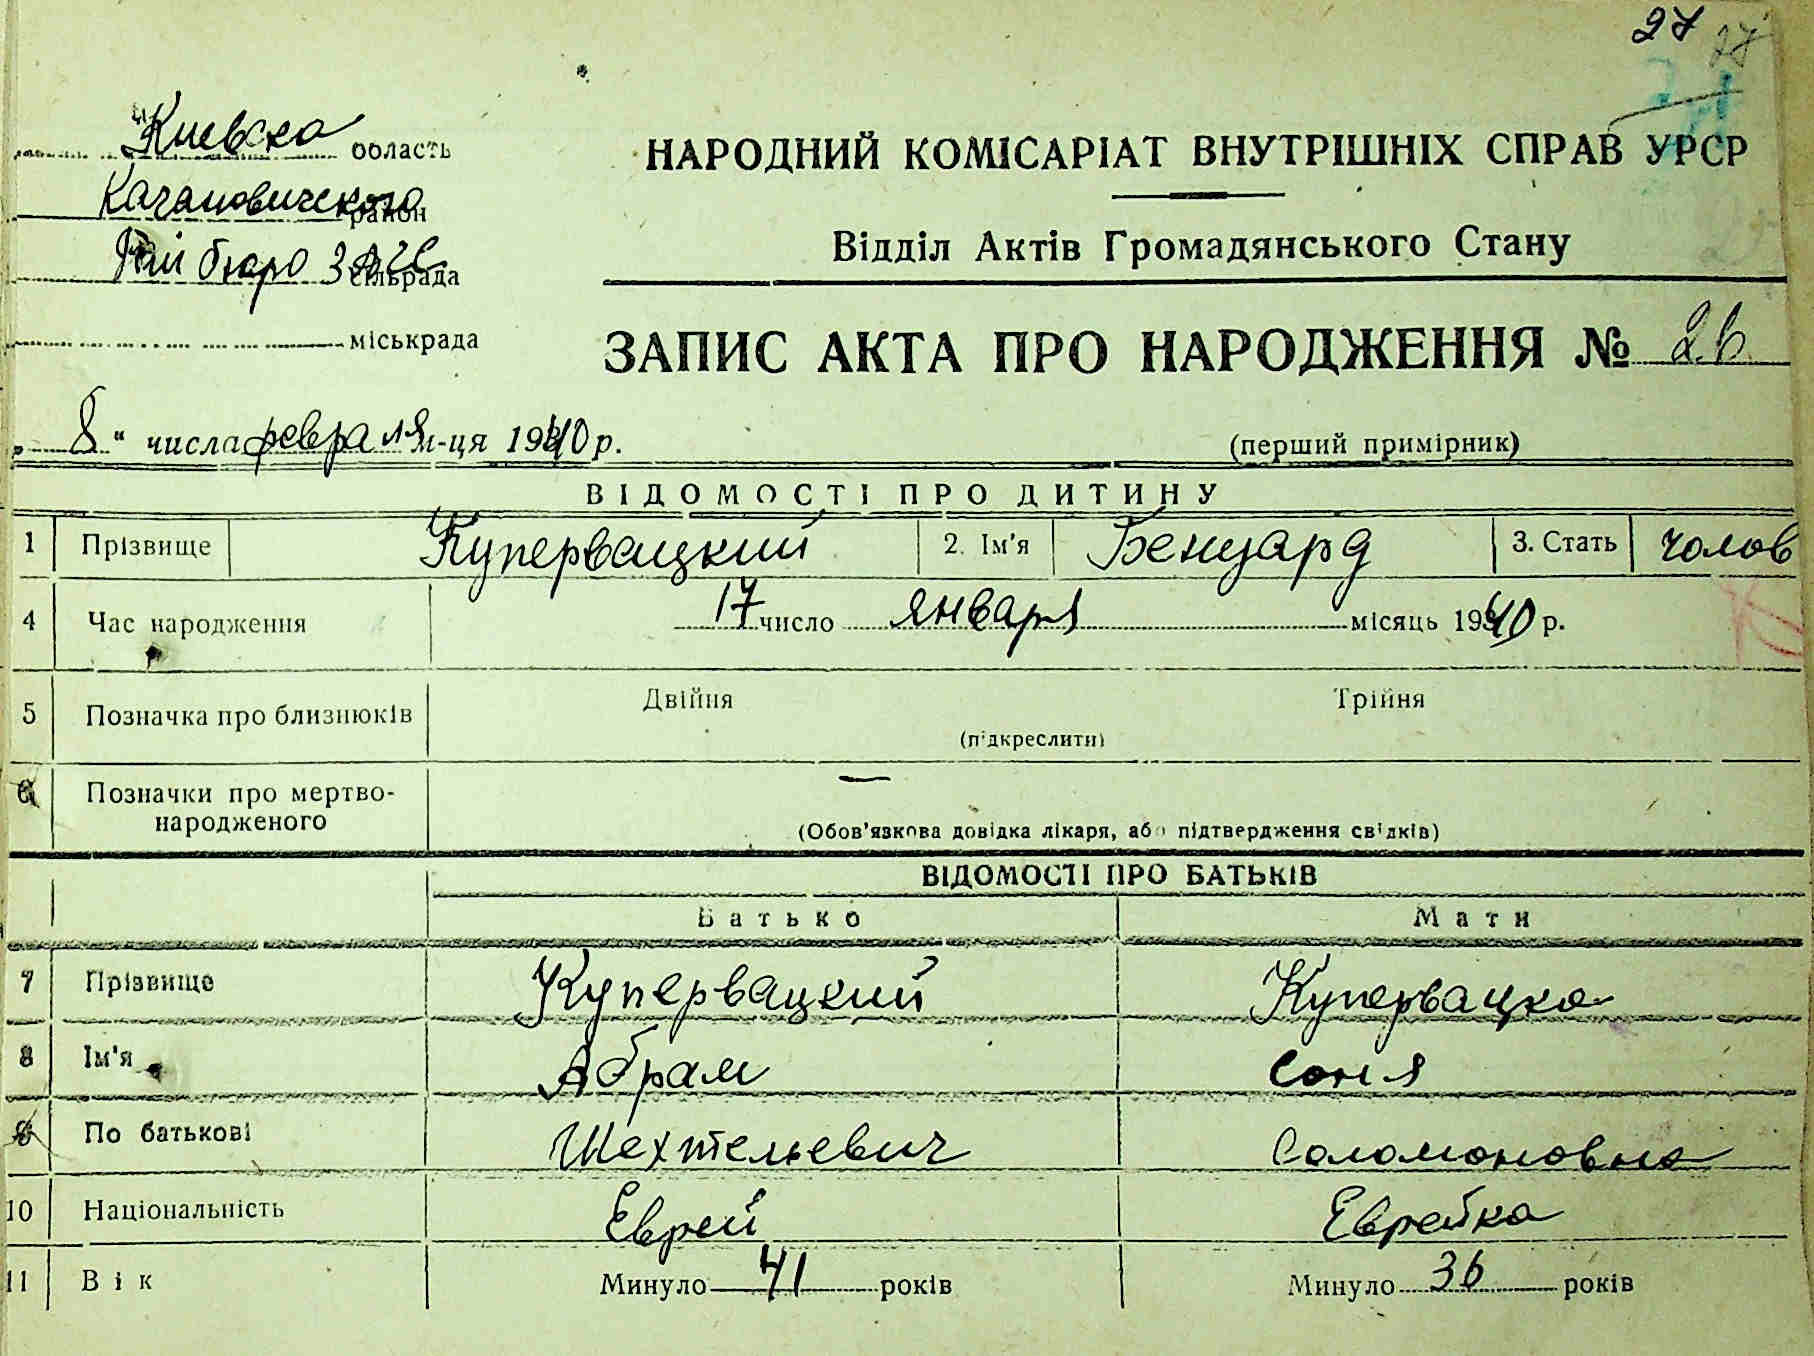 27 27
Киевска область
Кагановичского район
Рай бюро ЗАГС сільрада
міськрада
НАРОДНИЙ КОМІСАРІАТ ВНУТРІШНІХ СПРАВ УРСР
Відділ Актів Громадянського Стану
ЗАПИС АКТА ПРО НАРОДЖЕННЯ № 26
„8“ числа февраля м-ця 1940 р.
(перший примірник)
ВІДОМОСТІ ПРО ДИТИНУ
1 Прізвище Купервацкий 2. Ім'я Бенуард 3. Стать чолов
4 Час народження 17 число января місяць 1940 р.
5 Позначка про близнюків Двійня Трійня
(підкреслити)
6 Позначки про мертво-
народженого —
(Обов'язкова довідка лікаря, або підтвердження свідків)
ВІДОМОСТІ ПРО БАТЬКІВ
Батько Мати
7 Прізвище Купервацкий Купервацка
8 Ім'я Абрам Соня
9 По батькові Шехтельевич Соломоновна
10 Національність Еврей Еврейка
11 Вік Минуло 41 років Минуло 36 років